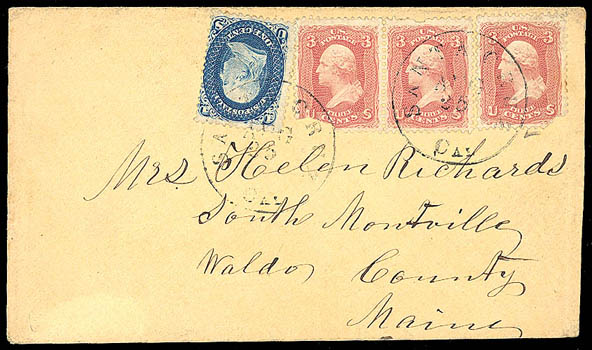 U.S. POSTAGE
3 3
U THREE CENTS S
U.S. POSTAGE
3 3
U THREE CENTS S
U.S. POSTAGE
3 3
U THREE CENTS S
U.S. POSTAGE
ONE CENT
SANTA
Cal
Cal
Mrs Helon Richards
South Montville
Waldo County
Maine